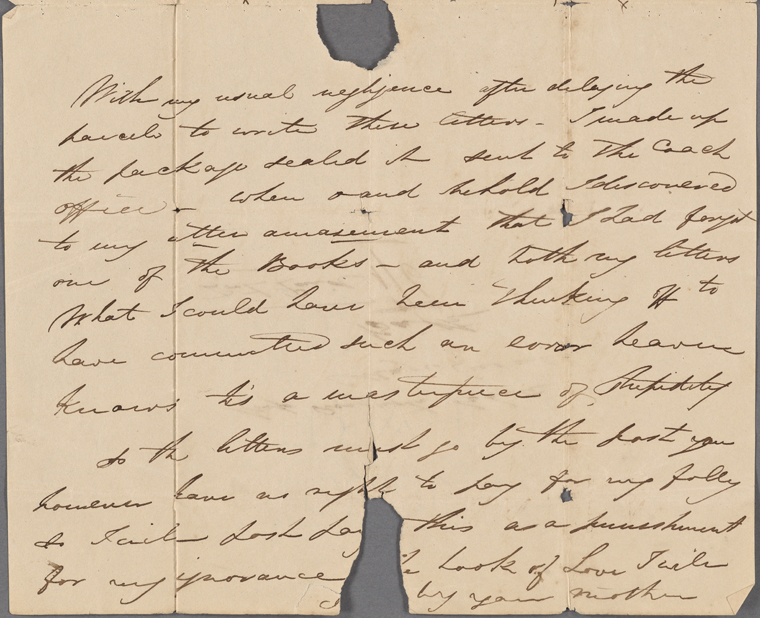 With my usual neglijence after delaying the
parcels to write these letters - I made up
the package sealed it sent to the Coach
office - when o and behold I discovered
to my utter amasement that I had forgot
one of the Books - and both my letters
What I could have been thinking off to
have committed such an error heaven
knows tis a masterpiece of Stupidity
so the letters must go by the post you
however have no right to pay for my folly
so I will post pay this as a punishment
for my ignorance book of Love I will
by your mother